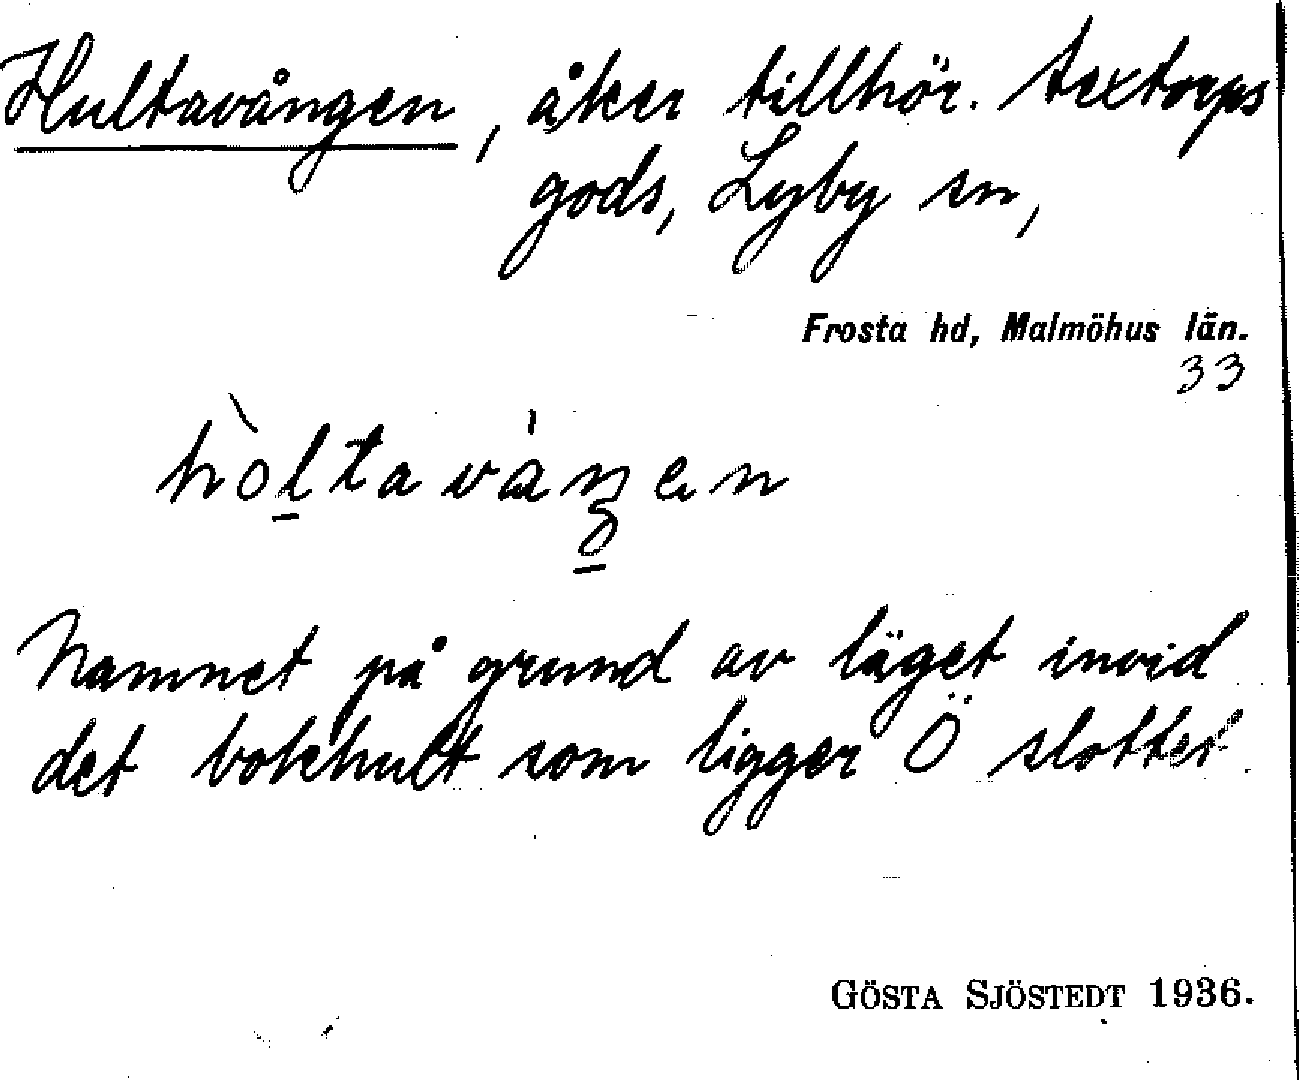 Hultavången, åker tillhör. Sextorps
gods, Lyby sn,
Frosta hd, Malmöhus län.
33
hòltavåŋen
Namnet på grund av läget invid
det bokhult som ligger Ö slottet.
GÖSTA SJÖSTEDT 1936.